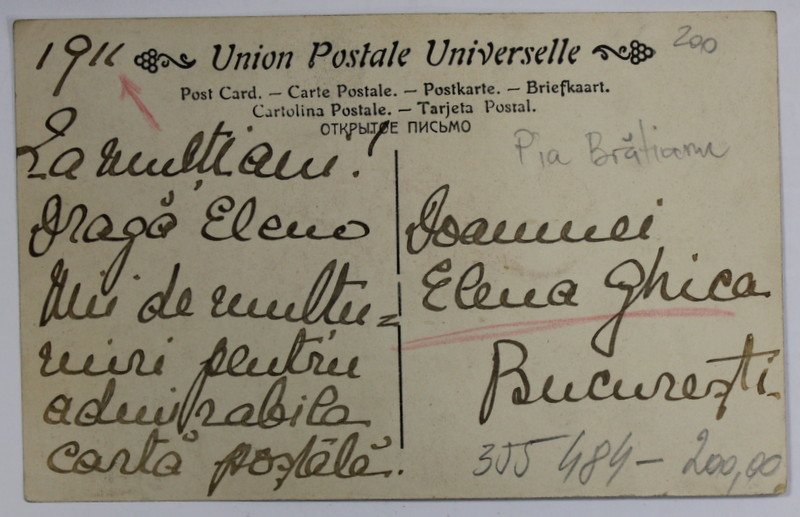 1911 Union Postale Universelle 200
Post Card. — Carte Postale. — Postkarte. — Briefkaart.
Cartolina Postale. — Tarjeta Postal.
ОТКРЫТОЕ ПИСЬМО
Pia Brătianu
La mulți ani!
Dragă Eleno
Mii de multu=
miri pentru
admirabila
cartă poștălă.
Doamnei
Elena Ghica
București
355 484 — 200,00